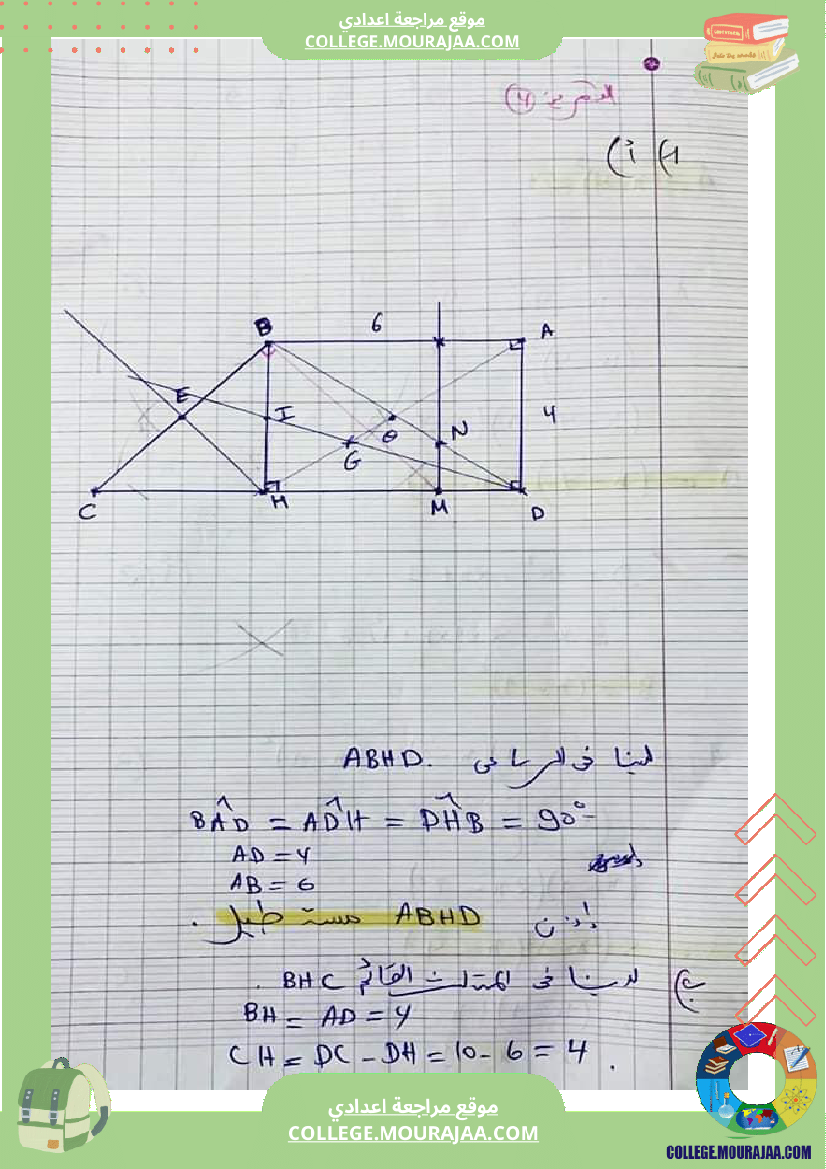 موقع مراجعة اعدادي
COLLEGE.MOURAJAA.COM
1) أ)
B 6 A
E I 4
θ N
G
C H M D
لدينا في الرباعي ABHD.
BÂD = AD̂H = DĤB = 90°
AD = 4
AB = 6
إذن ABHD مستطيل.
ب) لدينا في المثلث القائم BHC.
BH = AD = 4
CH = DC - DH = 10 - 6 = 4.
موقع مراجعة اعدادي
COLLEGE.MOURAJAA.COM
COLLEGE.MOURAJAA.COM